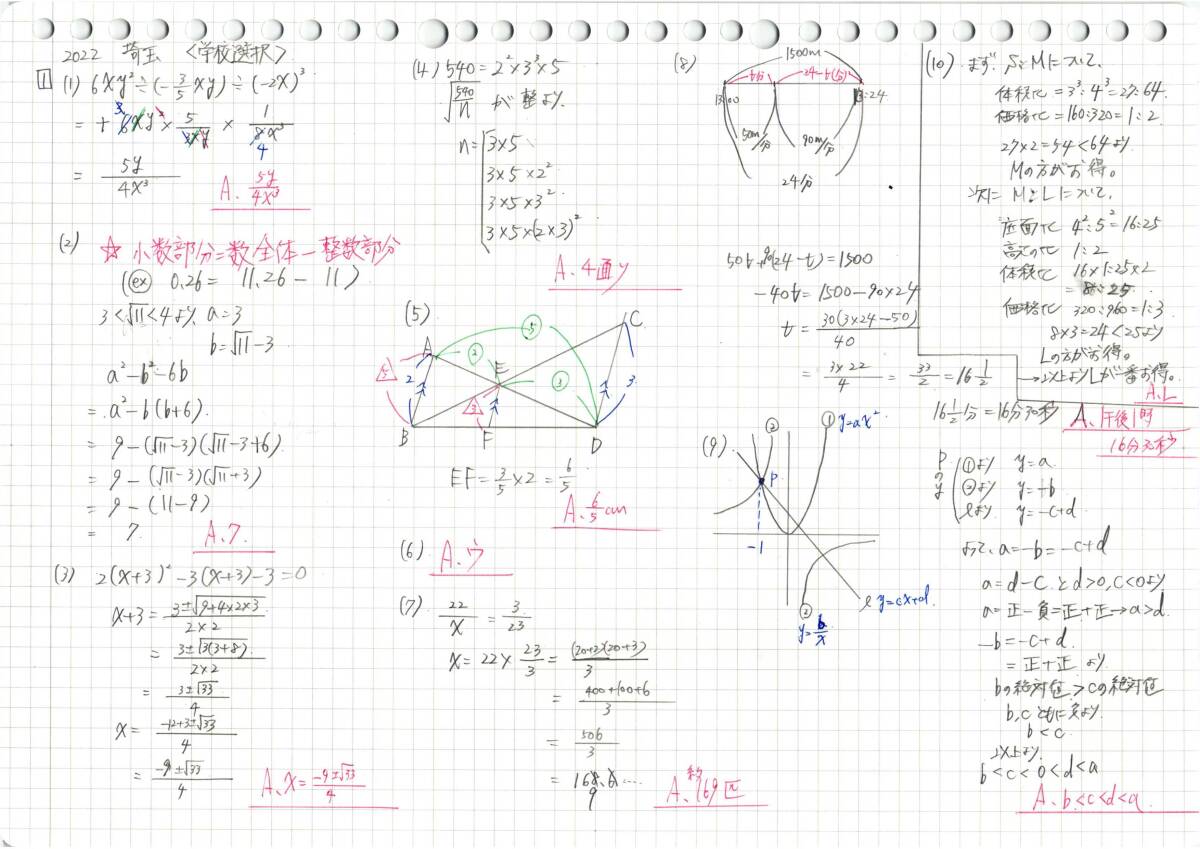 2022 埼玉 <学校選択>
1 (1) 6xy² ÷ (-3/5 xy) ÷ (-2x)³
= + 6xy² × 5/3xy × 1/8x³
3
4
= 5y/4x³
A. 5y/4x³
(2) ☆ 小数部分=数全体-整数部分
(ex) 0.26 = 11.26 - 11)
3<√11<4より a=3
b=√11-3
a²-b²-6b
= a²-b(b+6)
= 9-(√11-3)(√11-3+6)
= 9-(√11-3)(√11+3)
= 9-(11-9)
= 7.
A. 7.
(3) 2(x+3)²-3(x+3)-3=0
x+3 = 3±√9+4×2×3/2×2
= 3±√3(3+8)/2×2
= 3±√33/4
x = -12+3±√33/4
= -9±√33/4
A、x = -9±√33/4
(4) 540 = 2²×3³×5
√540/n が整より.
n= 3×5
3×5×2²
3×5×3²
3×5×(2×3)²
A. 4通り
(5)
A B C D E F
5 2 3
2 3
5 3
EF = 3/5 × 2 = 6/5
A. 6/5 cm
(6) A.ウ
(7) 22/x = 3/23
x = 22 × 23/3 = (20+2)(20+3)/3
= 400+100+6/3
= 506/3
= 168.6…
9
A. 約169匹
(8)
1500m
t分 24-t(分)
13:00 13:24
50m/分 90m/分
24分
50t+90(24-t)=1500
-40t = 1500-90×24
t = 30(3×24-50)/40
= 3×22/4 = 33/2 = 16 1/2
16 1/2分 = 16分30秒
A、午後1時
16分30秒
(9)
② ① y=ax²
P
-1
ℓ y=cx+d
② y=b/x
Pのy
①より y=a
②より y=-b
ℓより y=-c+d
よって、a=-b=-c+d
a=d-c.とd>0,c<0より
a=正-負=正+正→a>d.
-b=-c+d.
=正+正 より
bの絶対値>cの絶対値
b,cともに負より.
b<c.
以上より.
b<c<0<d<a
A. b<c<d<a.
(10) まず.SとMについて.
体積比 = 3³:4³=27:64.
価格比 = 160:320=1:2.
27×2=54<64より
Mの方がお得。
次に MとLについて.
底面比 4²:5²=16:25
高さの比 1:2
体積比 16×1:25×2
= 8:25
価格比 320:960=1:3
8×3=24<25より
Lの方がお得。
→以上よりLが一番お得。
A.L